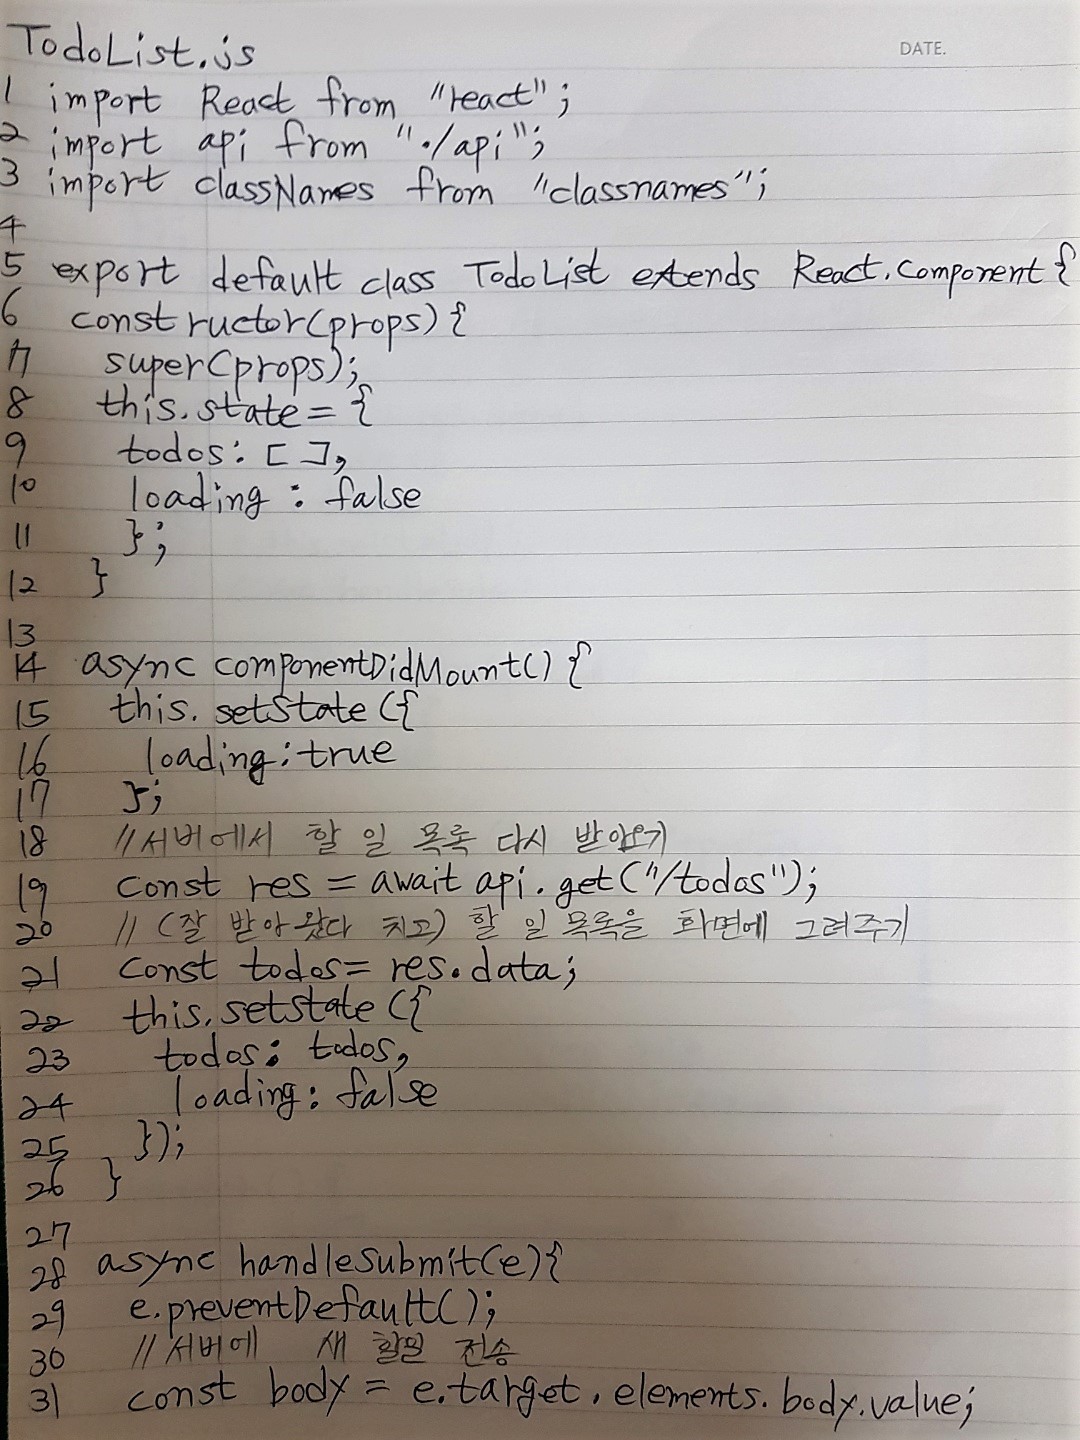 DATE.
TodoList.js
1 import React from "react";
2 import api from "./api";
3 import classNames from "classnames";
4
5 export default class TodoList extends React.Component {
6 constructor(props) {
7 super(props);
8 this.state = {
9 todos: [ ],
10 loading : false
11 };
12 }
13
14 async componentDidMount() {
15 this. setState ({
16 loading: true
17 };
18 // 서버에서 할 일 목록 다시 받아오기
19 const res = await api.get("/todos");
20 // (잘 받아 왔다 치고) 할 일 목록을 화면에 그려주기
21 const todos = res.data;
22 this.setState ({
23 todos: todos,
24 loading: false
25 });
26 }
27
28 async handleSubmit(e){
29 e.preventDefault();
30 // 서버에 새 할일 전송
31 const body = e.target.elements.body.value;